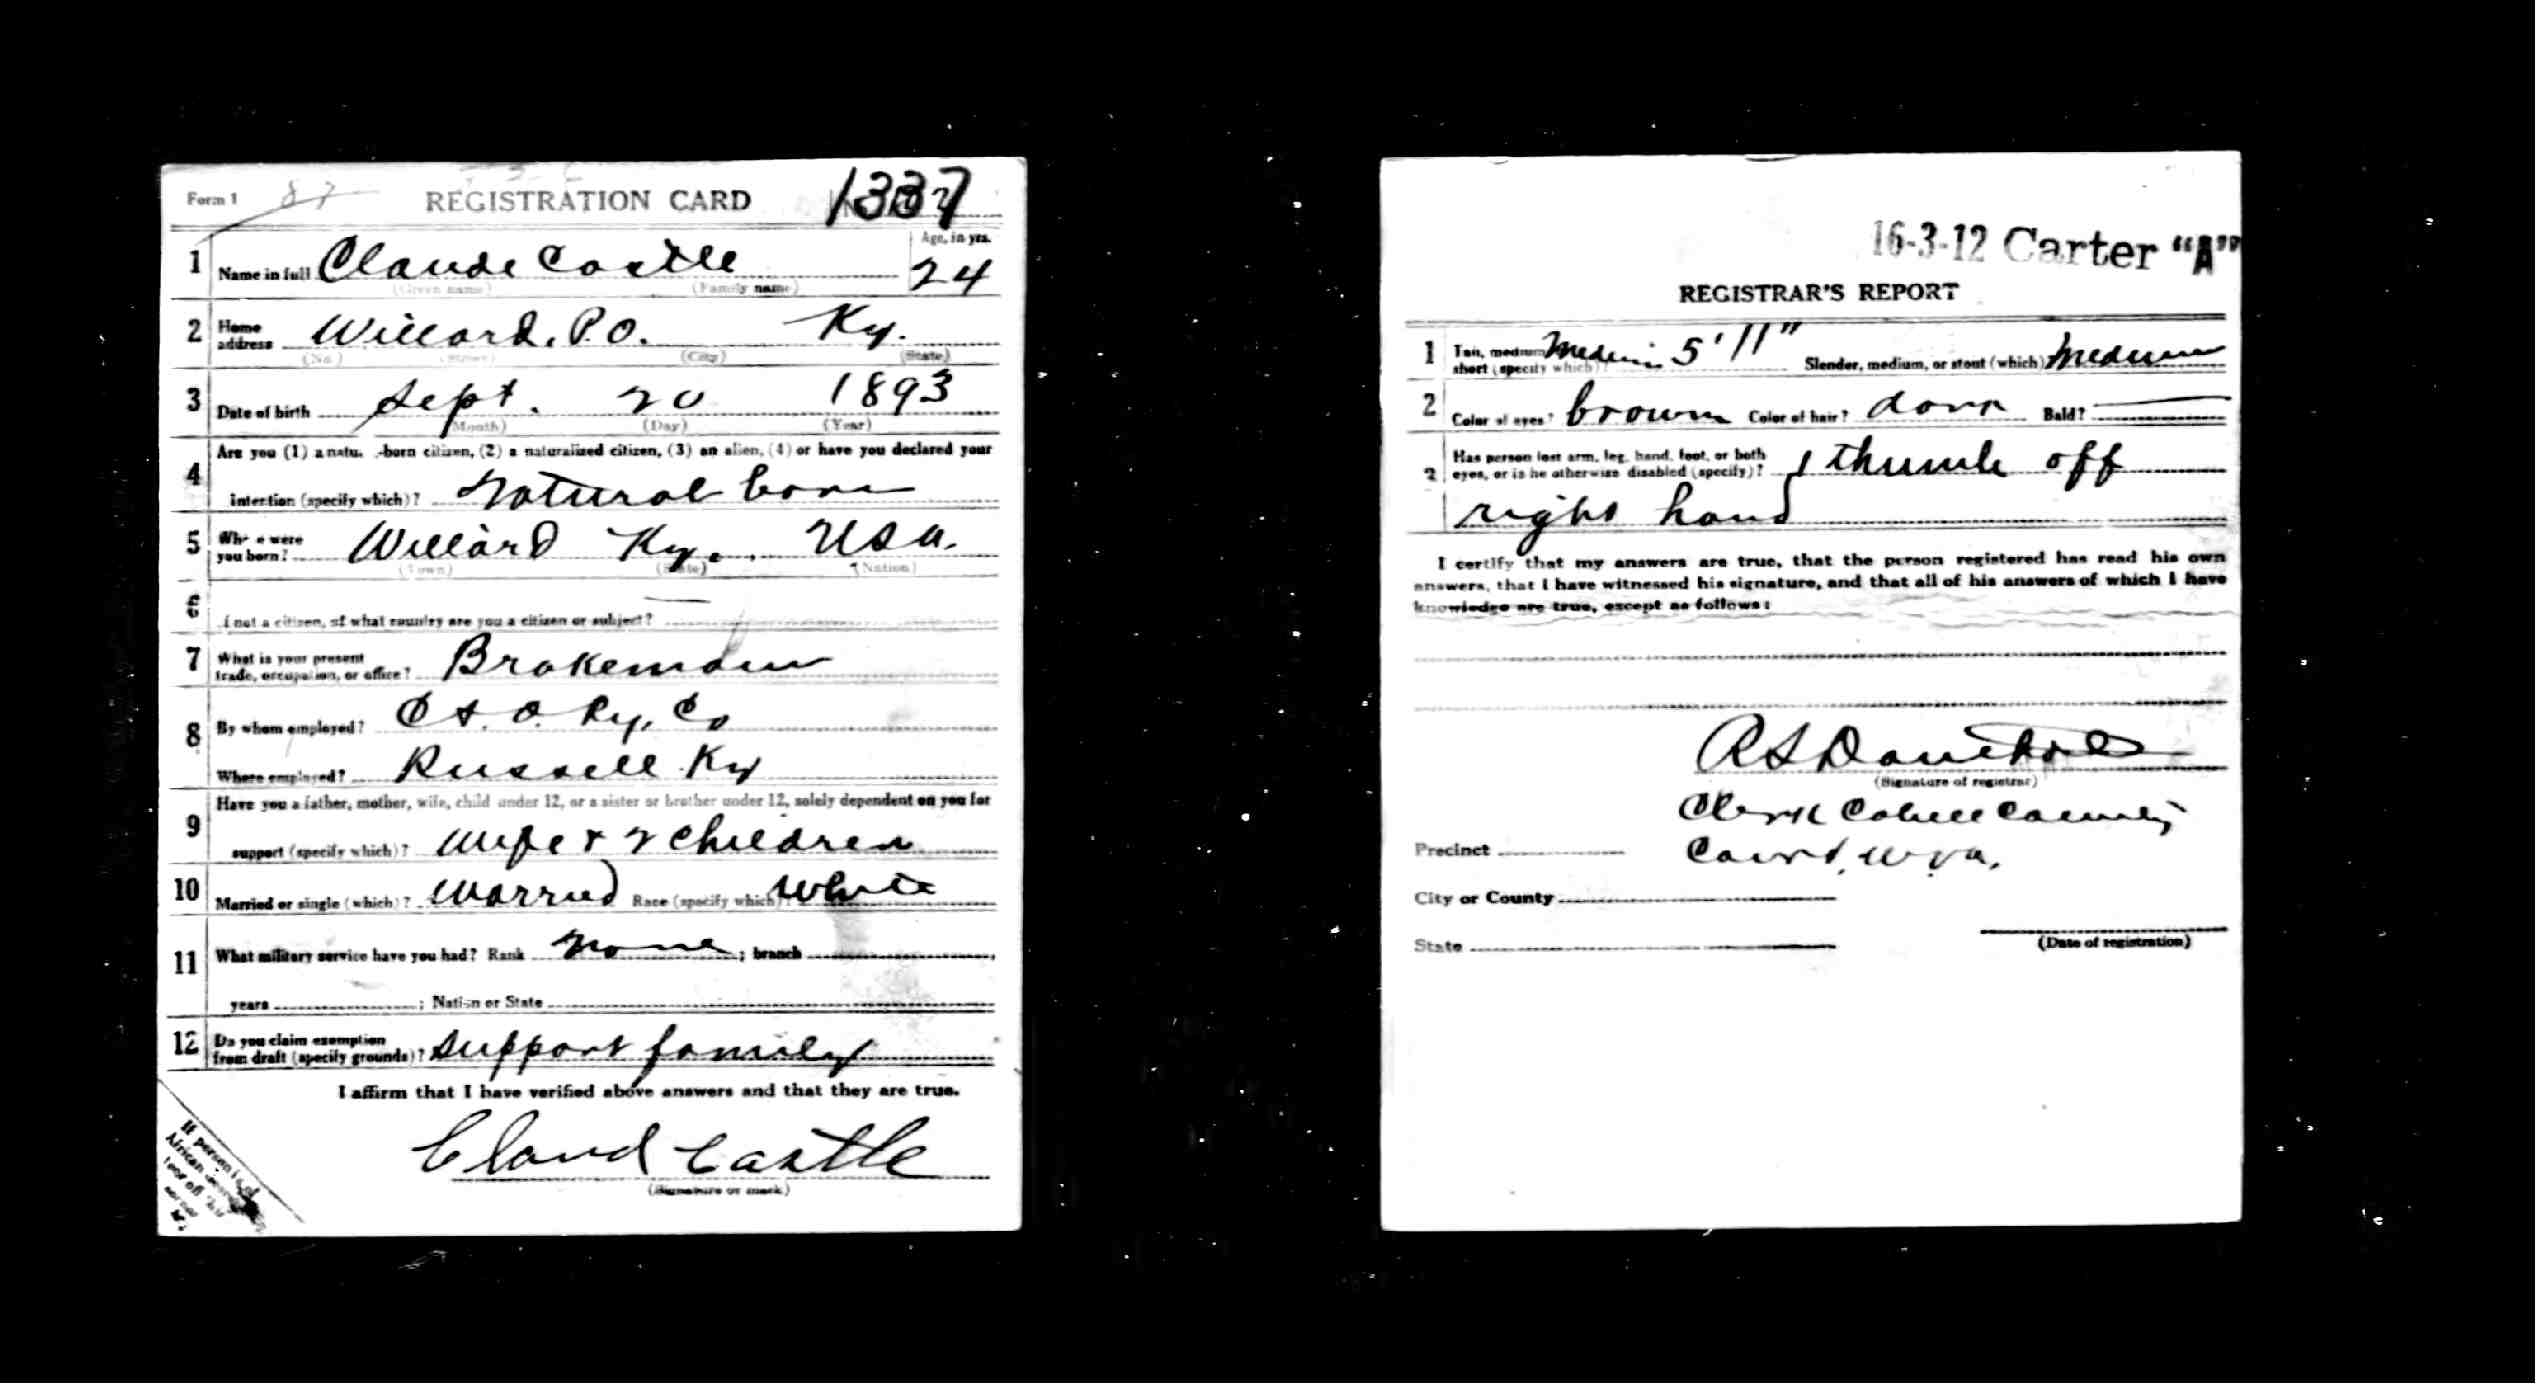 Form 1 87 REGISTRATION CARD 1337
1 Name in full Claude Castle Age, in yrs. 24
(Given name) (Family name)
2 Home address Willard. P.O. Ky.
(No.) (Street) (City) (State)
3 Date of birth Sept. 20 1893
(Month) (Day) (Year)
4 Are you (1) a natu -born citizen, (2) a naturalized citizen, (3) an alien, (4) or have you declared your
intention (specify which)? Natural born
5 Where were you born? Willard Ky. USA.
(Town) (State) (Nation)
6 If not a citizen, of what country are you a citizen or subject? —
7 What is your present trade, occupation, or office? Brakeman
8 By whom employed? C & O. Ry. Co
Where employed? Russell Ky
9 Have you a father, mother, wife, child under 12, or a sister or brother under 12, solely dependent on you for
support (specify which)? Wife & 2 children
10 Married or single (which)? Married Race (specify which)? White
11 What military service have you had? Rank None ; branch
years ; Nation or State
12 Do you claim exemption from draft (specify grounds)? Support family
I affirm that I have verified above answers and that they are true.
Claud Castle
(Signature or mark)
If person is of
African
tear off
16-3-12 Carter "A"
REGISTRAR'S REPORT
1 Tall, medium, short (specify which)? Medium 5' 11" Slender, medium, or stout (which)? Medium
2 Color of eyes? brown Color of hair? dark Bald? —
3 Has person lost arm, leg, hand, foot, or both eyes, or is he otherwise disabled (specify)? 1 thumb off
right hand
I certify that my answers are true, that the person registered has read his own
answers, that I have witnessed his signature, and that all of his answers of which I have
knowledge are true, except as follows:
(Signature of registrar)
Clerk Cabell County
Precinct Court, W. Va.
City or County
State (Date of registration)